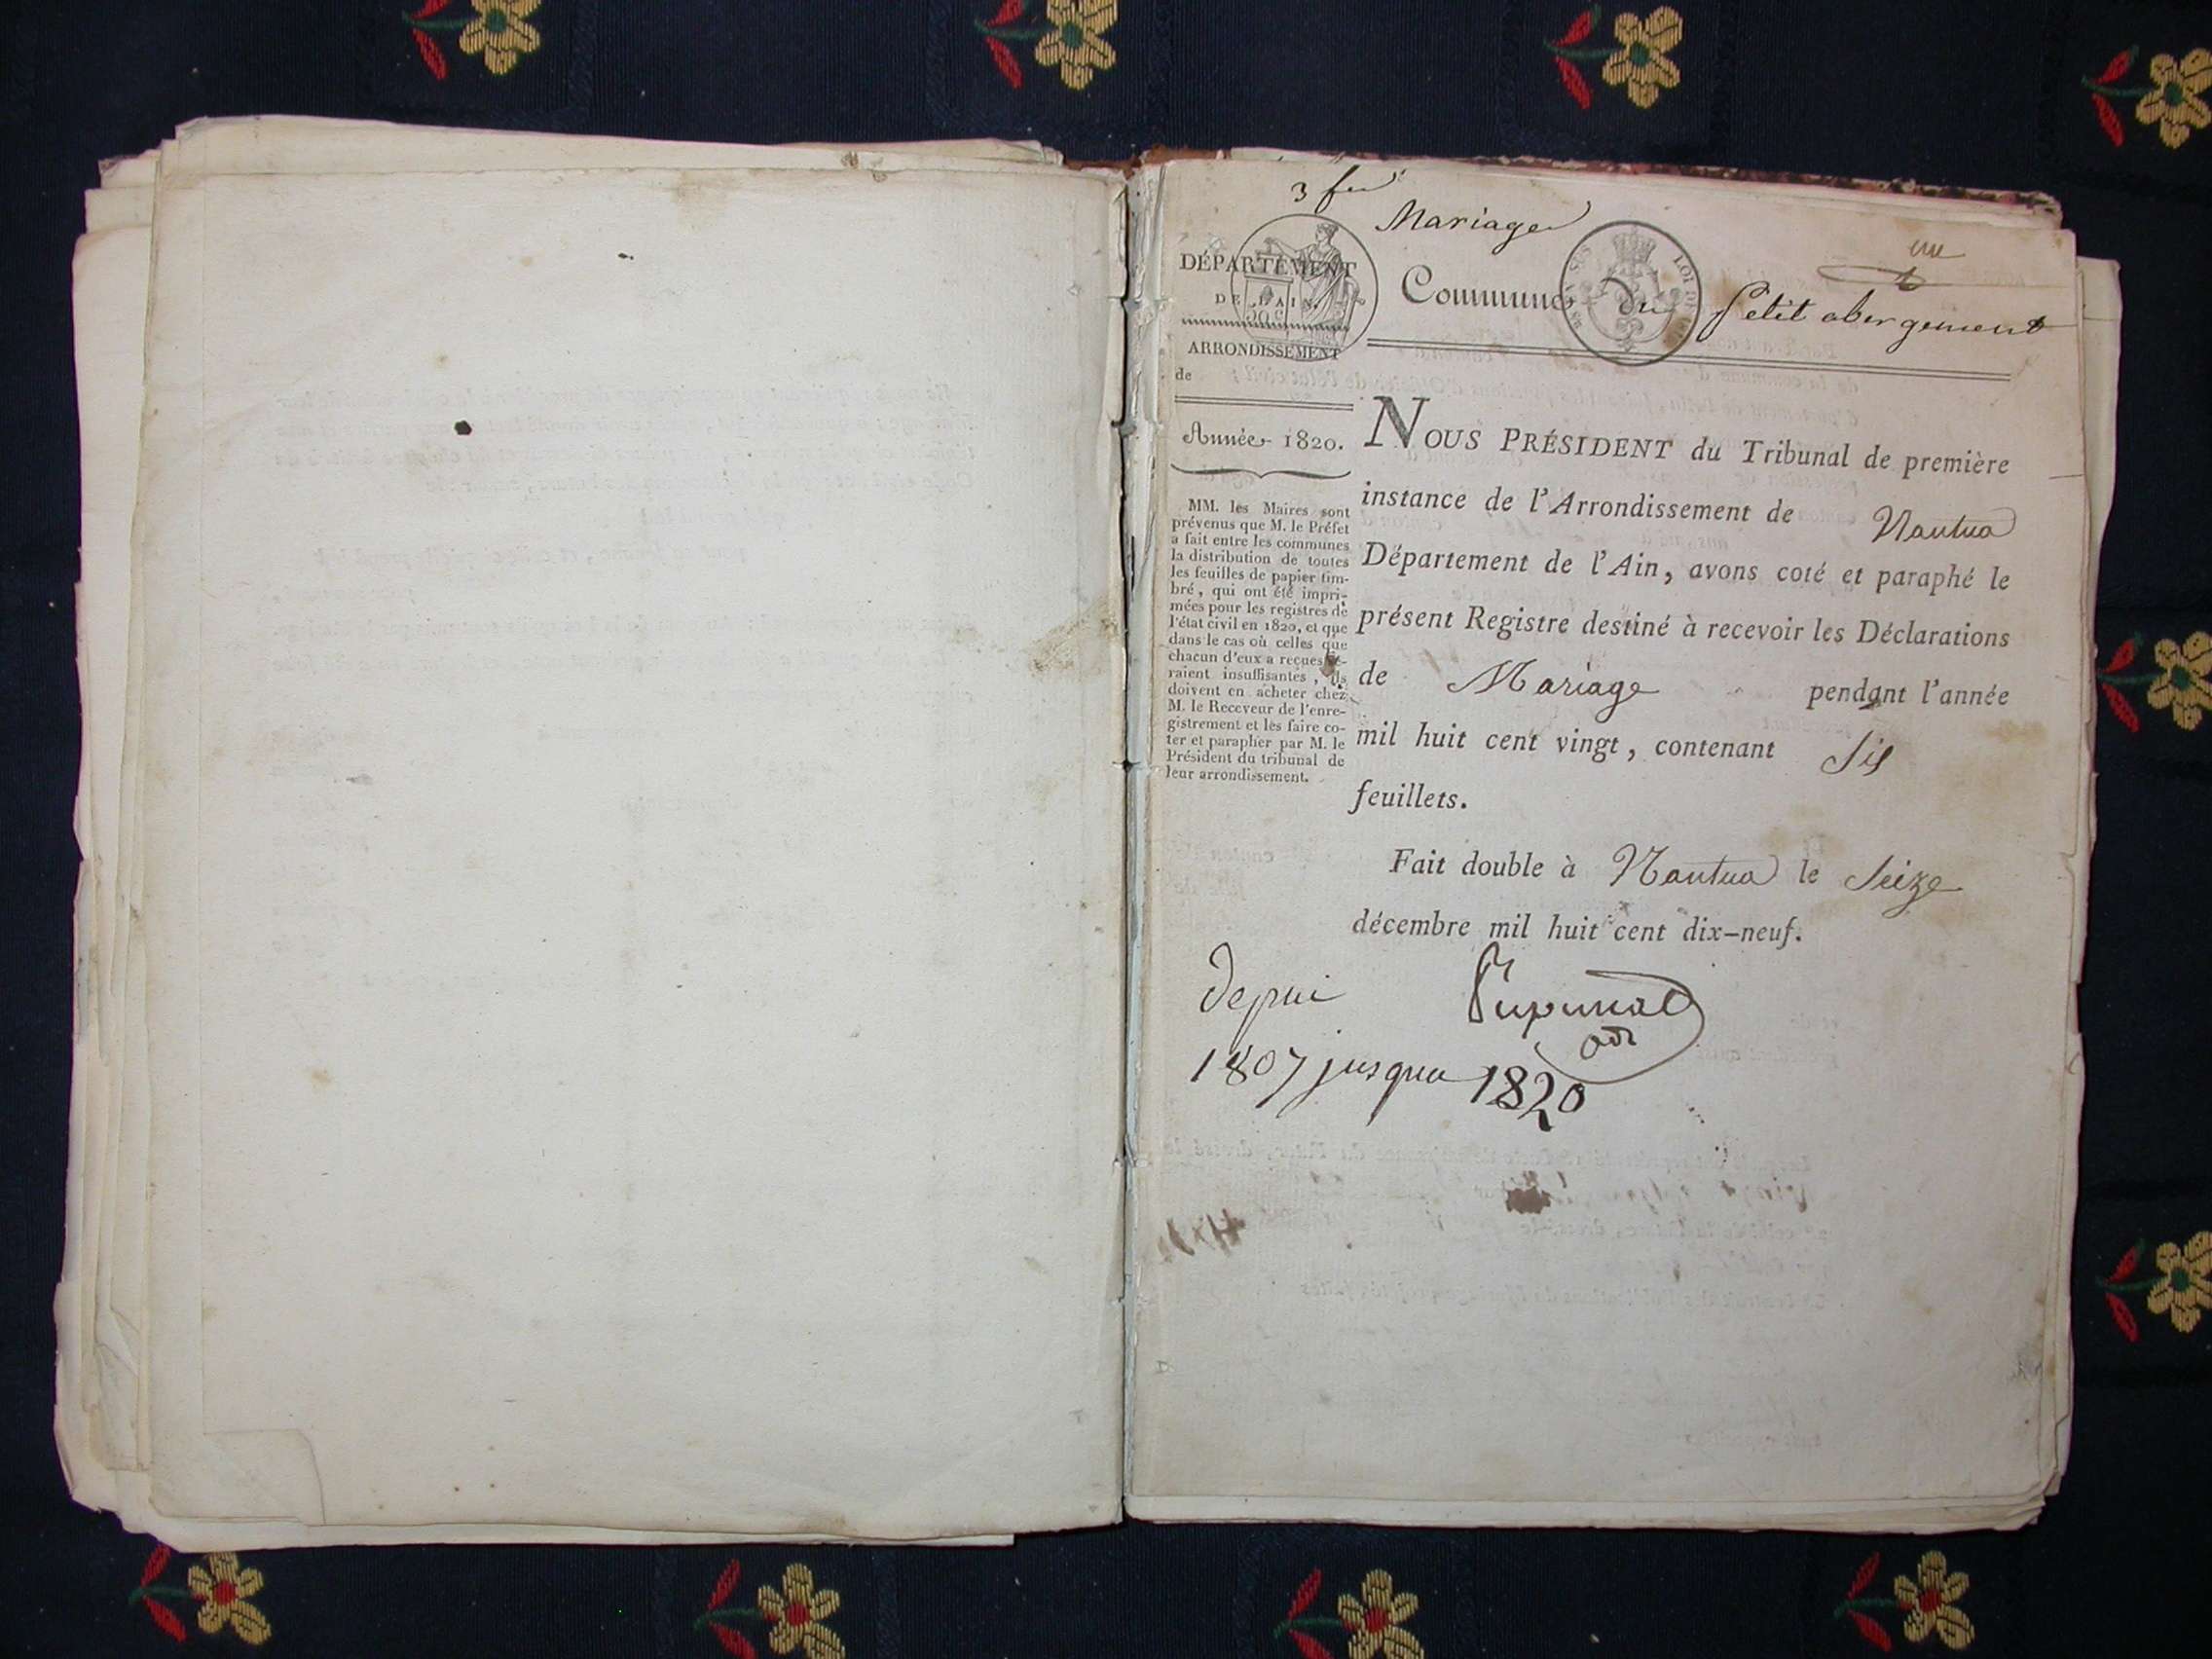 3 feu
Mariage
une
DÉPARTEMENT
DE L'AIN.
Commune du Petit abergement
ARRONDISSEMENT
de
Année 1820.
MM. les Maires sont
prévenus que M. le Préfet
a fait entre les communes
la distribution de toutes
les feuilles de papier tim-
bré, qui ont été impri-
mées pour les registres de
l'état civil en 1820, et que
dans le cas où celles que
chacun d'eux a reçues se-
raient insuffisantes, ils
doivent en acheter chez
M. le Receveur de l'enre-
gistrement et les faire co-
ter et parapher par M. le
Président du tribunal de
leur arrondissement.
NOUS PRÉSIDENT du Tribunal de première
instance de l'Arrondissement de Nantua
Département de l'Ain, avons coté et paraphé le
présent Registre destiné à recevoir les Déclarations
de Mariage pendant l'année
mil huit cent vingt, contenant Six
feuillets.
Fait double à Nantua le Seize
décembre mil huit cent dix-neuf.
depui
1807 jusqua 1820